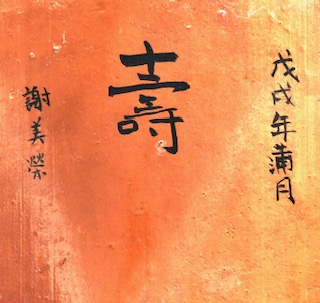 戊戌年蒲月
壽
謝美榮